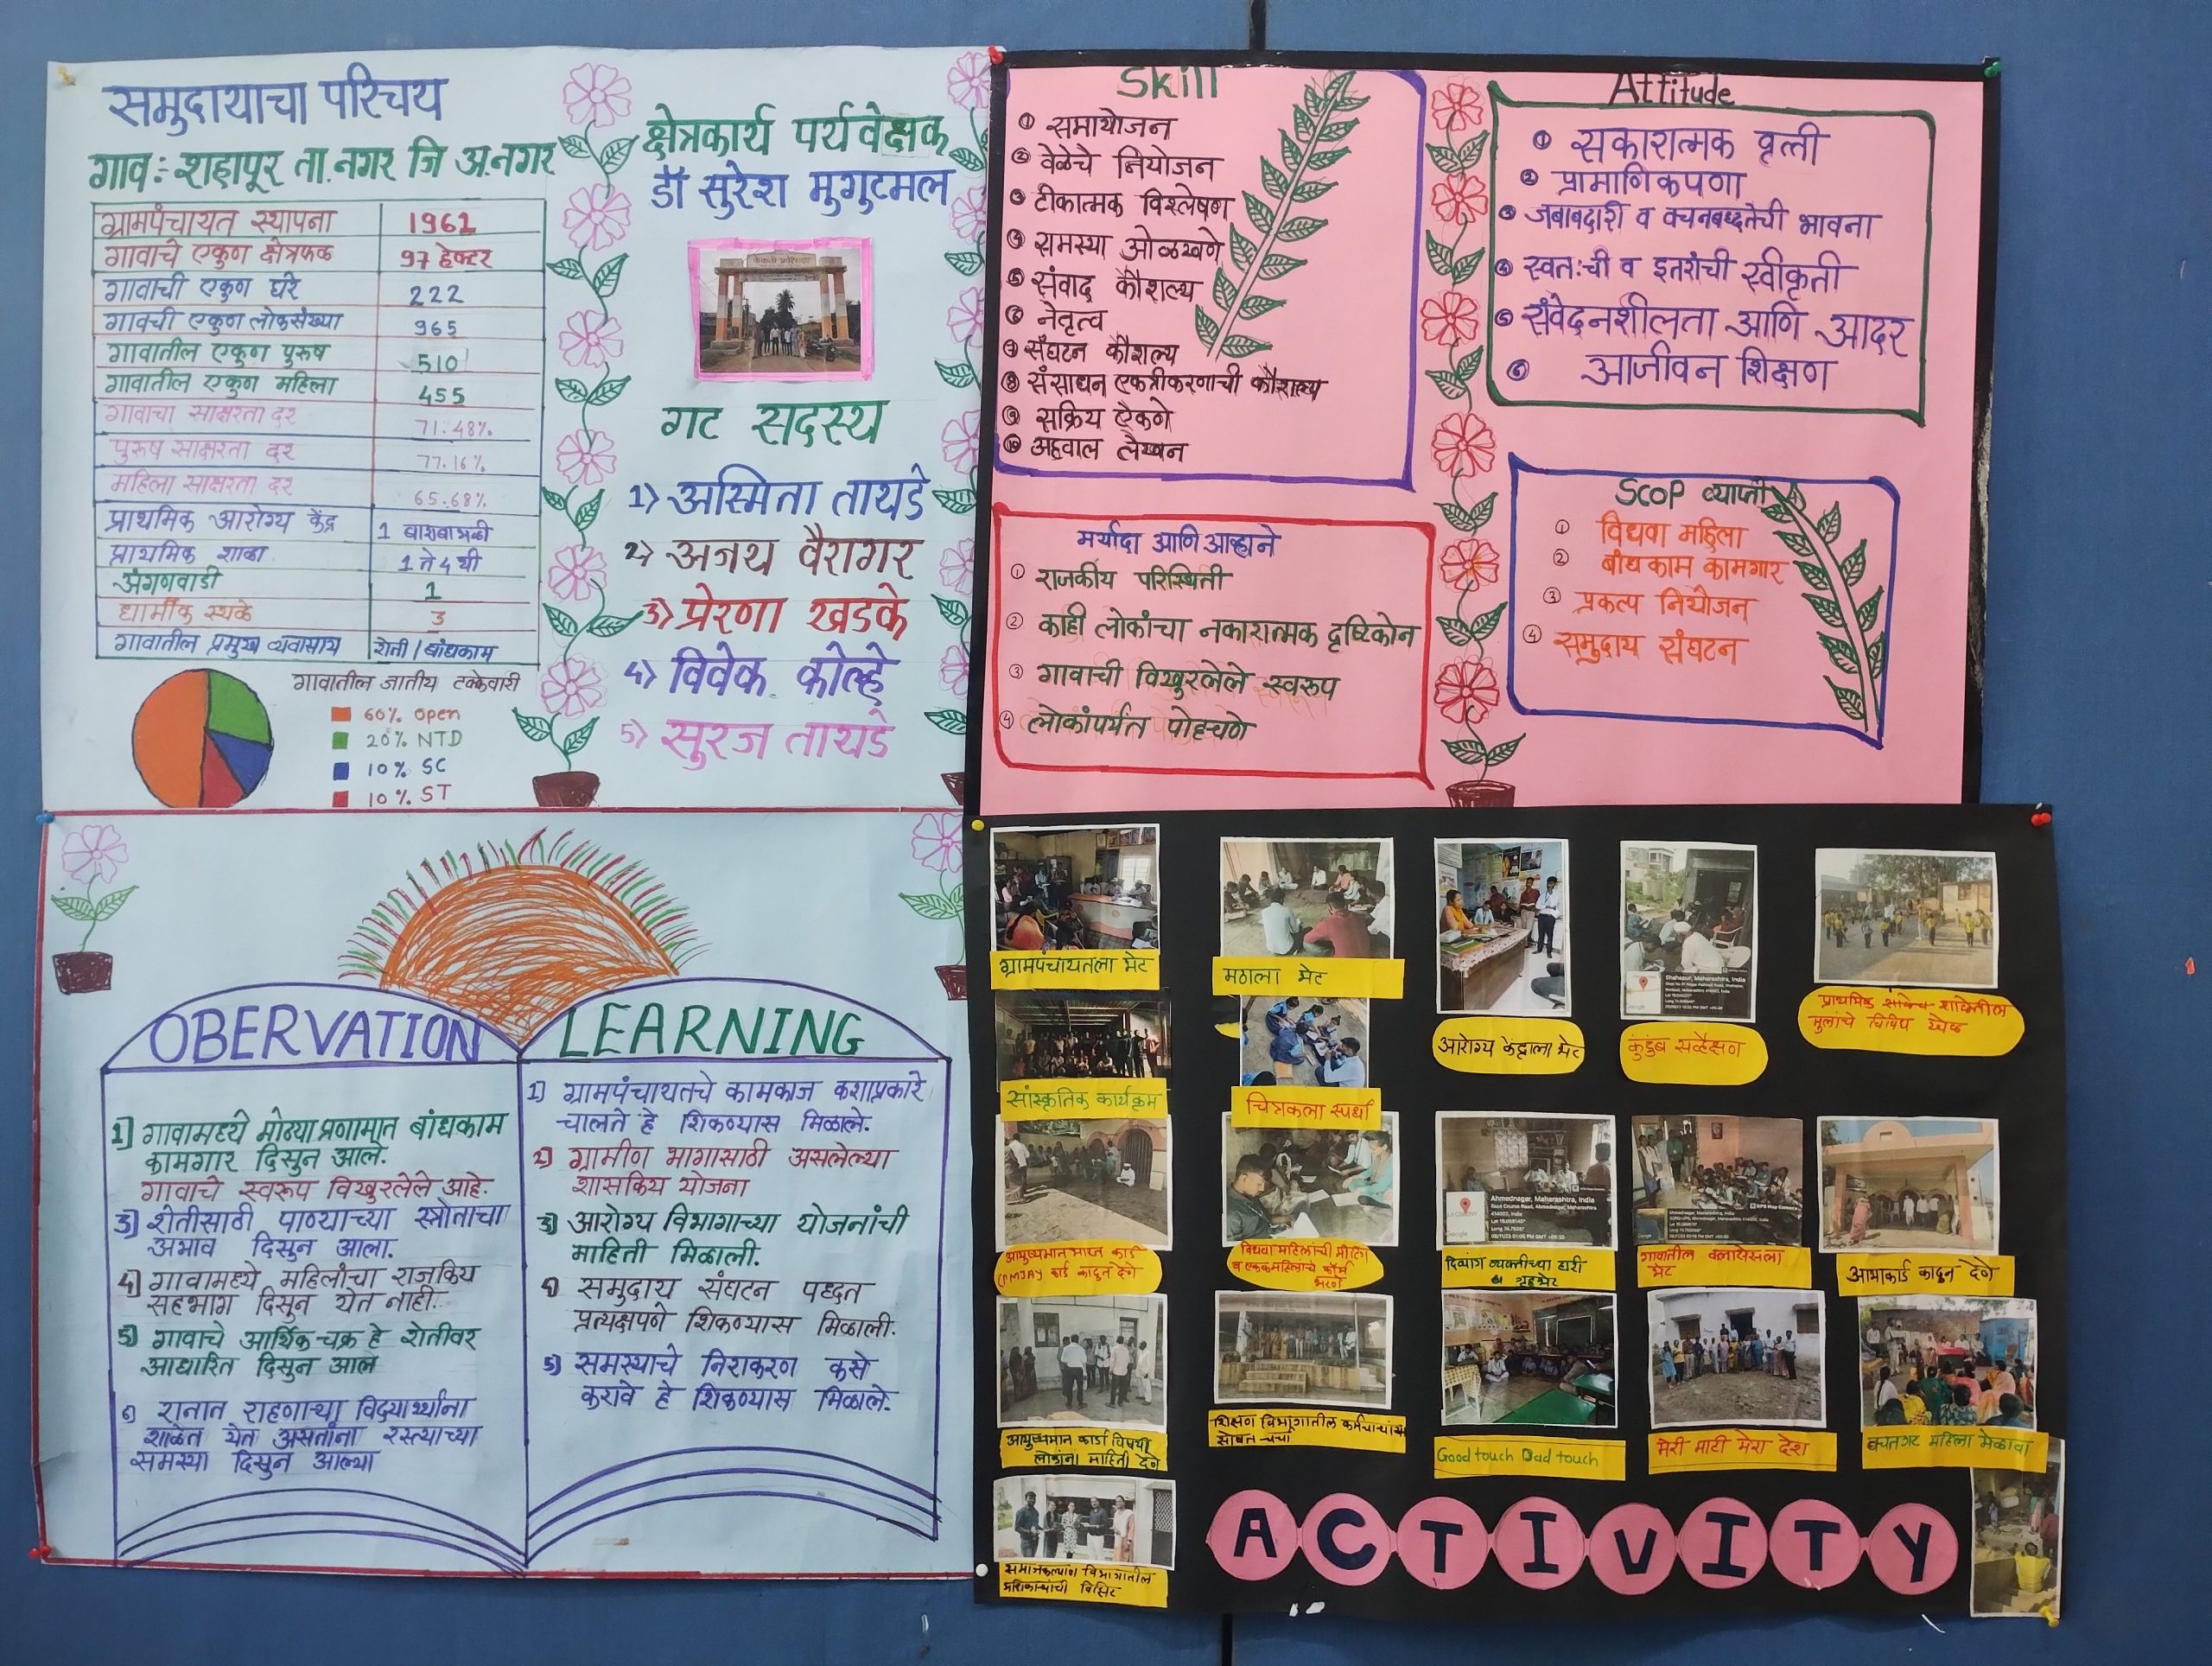 समुदायाचा परिचय
गाव:- शहापूर ता.नगर जि अ.नगर
ग्रामपंचायत स्थापना 1961
गावाचे एकुण क्षेत्रफळ 97 हेक्टर
गावाची एकुण घरे 222
गावची एकुण लोकसंख्या 965
गावातील एकुण पुरुष 510
गावातील एकुण महिला 455
गावाचा साक्षरता दर 71.48%
पुरुष साक्षरता दर 77.16%
महिला साक्षरता दर 65.68%
प्राथमिक आरोग्य केंद्र 1
प्राथमिक शाळा 1 ते 4 थी
अंगणवाडी 1
धार्मीक स्थळे 3
गावातील प्रमुख व्यवासाय शेती/बांधकाम
गावातील जातीय टक्केवारी
60% Open
20% NTD
10% SC
10% ST
क्षेत्रकार्य पर्यवेक्षक
डॉ सुरेश मुगुटमल
गट सदस्य
1) अस्मिता तायडे
2) अजय वैरागर
3) प्रेरणा खडके
4) विवेक कोल्हे
5) सुरज तायडे
Skill
① समायोजन
② वेळेचे नियोजन
③ टीकात्मक विश्लेषण
④ समस्या ओळखणे
⑤ संवाद कौशल्य
⑥ नेतृत्व
⑦ संघटन कौशल्य
⑧ संसाधन एकत्रीकरणाची कौशल्य
⑨ सक्रिय ऐकणे
⑩ अहवाल लेखन
Attitude
① सकारात्मक वृत्ती
② प्रामाणिकपणा
③ जबाबदारी व वचनबध्दतेची भावना
④ स्वतःची व इतरांची स्वीकृती
⑤ संवेदनशीलता आणि आदर
⑥ आजीवन शिक्षण
मर्यादा आणि आव्हाने
① राजकीय परिस्थिती
② काही लोकांचा नकारात्मक दृष्टिकोन
③ गावाची विखुरलेले स्वरूप
④ लोकांपर्यंत पोहचणे
Scop व्याप्ती
① विधवा महिला
② बांधकाम कामगार
③ प्रकल्प नियोजन
④ समुदाय संघटन
OBERVATION
1] गावामध्ये मोठ्या प्रणामात बांधकाम
कामगार दिसुन आले.
गावाचे स्वरूप विखुरलेले आहे.
3] शेतीसाठी पाण्याच्या स्त्रोताचा
अभाव दिसुन आला.
4] गावामध्ये महिलांचा राजकिय
सहभाग दिसुन येत नाही.
5) गावाचे आर्थिक चक्र हे शेतीवर
आधारित दिसुन आल
6) रानात राहणाऱ्या विद्यार्थ्यांना
शाळेत येत असतांना रस्त्याच्या
समस्या दिसुन आल्या
LEARNING
1) ग्रामपंचायतचे कामकाज कशाप्रकारे
चालते हे शिकण्यास मिळाले.
2) ग्रामीण भागासाठी असलेल्या
शासकिय योजना
3) आरोग्य विभागाच्या योजनांची
माहिती मिळाली.
4) समुदाय संघटन पध्दत
प्रत्यक्षपणे शिकण्यास मिळाली.
5) समस्याचे निराकरण कसे
करावे हे शिकण्यास मिळाले.
ग्रामपंचायतला भेट
मठाला भेट
आरोग्य केंद्राला भेट
कुंटुंब सर्वेक्षण
मुलांचे विविध खेळ
सांस्कृतिक कार्यक्रम
चित्रकला स्पर्धा
आयुष्यमान भारत कार्ड
PMJAY कार्ड काढुन देणे
विधवा महिलांची मिटिंग
व एकल महिलाचे फॉर्म
भरणे
Ahmednagar, Maharashtra, India
दिव्यांग व्यक्तीच्या घरी
व गृहभेट
गावातील क्लासेसला
भेट
आभाकार्ड काढुन देणे
आयुष्यमान कार्डा विषयी
लोकांना माहिती देणे
शिक्षण विभागातील कर्मचाऱ्यांच्या
सोबत चर्चा
Good touch Bad touch
मेरी माटी मेरा देश
बचतगट महिला मेळावा
समाजकल्याण विभागातील
ACTIVITY